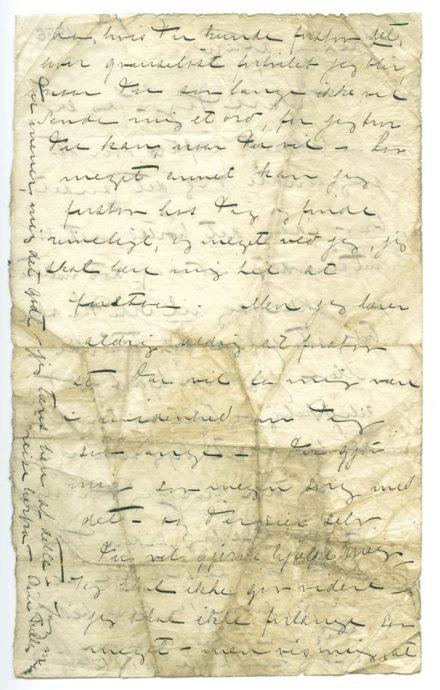 Du, hvis Du kunde forstaa det,
hvor grænseløst fortvilet jeg blir
naar Du saa længe ikke vil
sende mig et ord, for jeg tror
Du kan, naar Du vil – Saa
meget annet kan jeg
forstaa hos Dig og finde
rimeligt, og meget ved jeg, jeg
skal lære mig til at
forstaa. Men jeg lærer
aldrig aldrig at forstaa
at Du vil la mig være
i uvidenhed om Dig
saa længe – Du gjør
mig saa megen sorg med
det – og Du sier selv
Du vil gjerne hjælpe mig,
Jeg skal ikke gaa videre –
jeg skal ikke forlange saa
meget – men vis mig, at
Du mener mig det godt